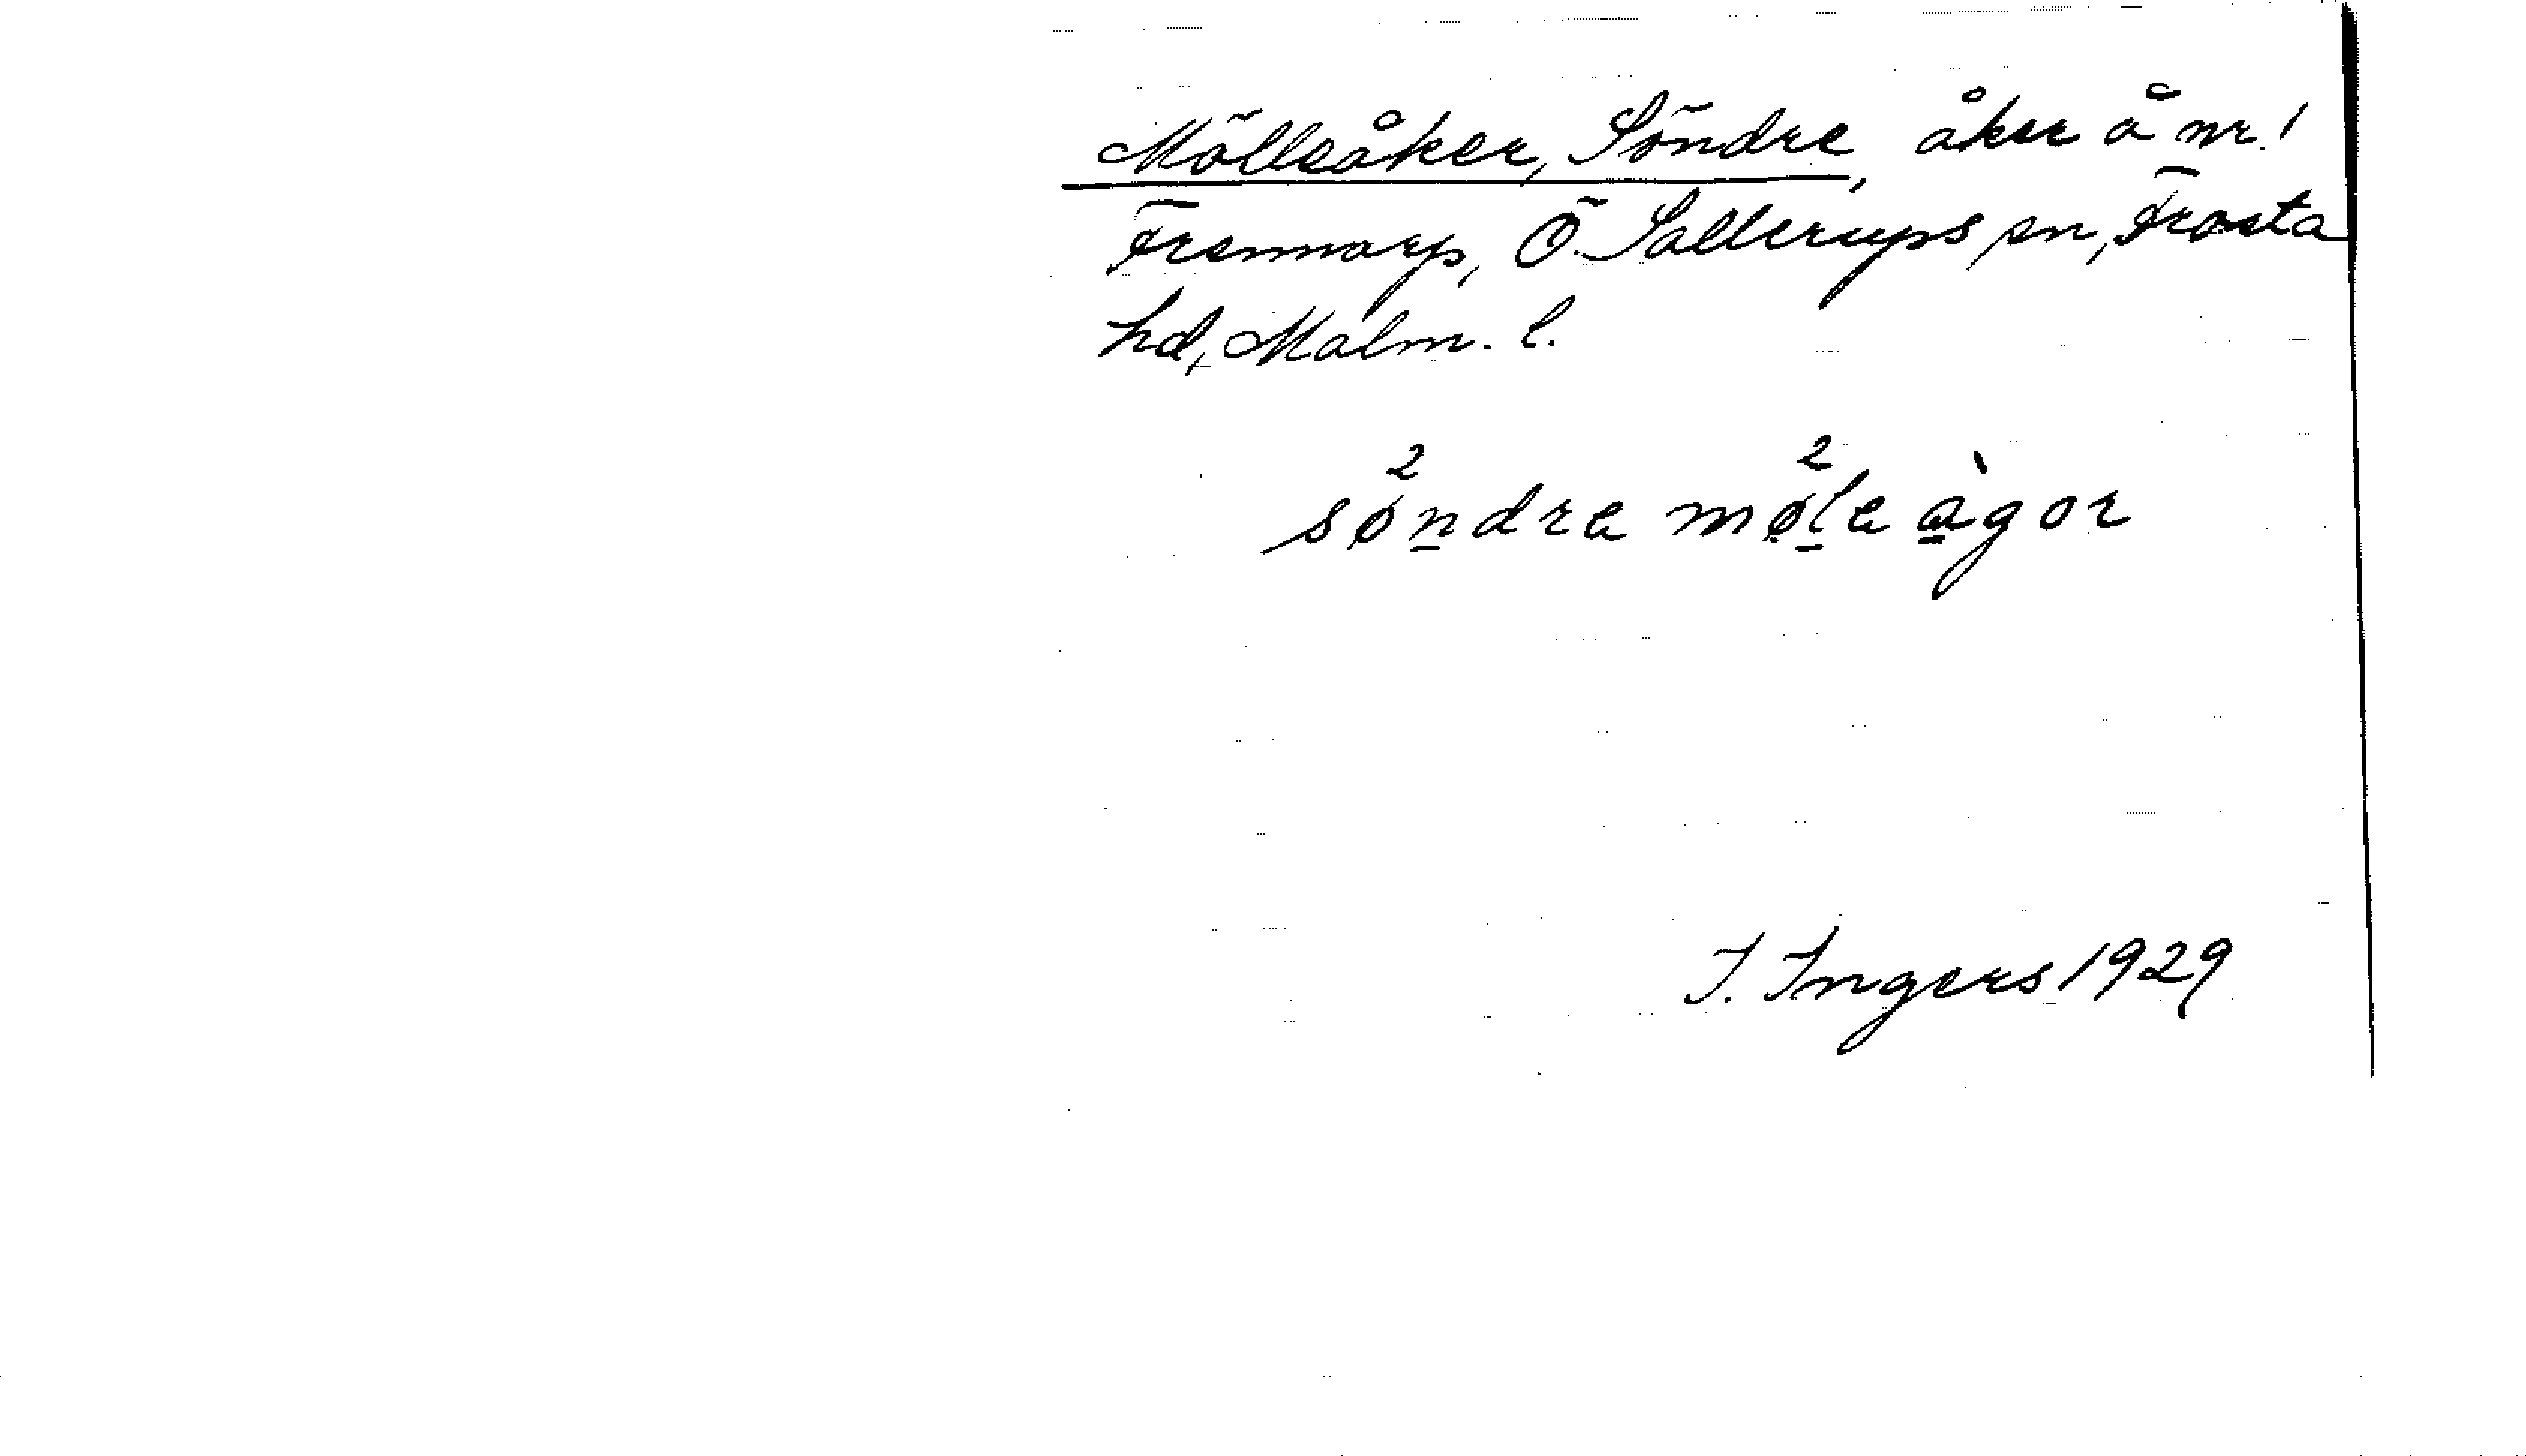 Mölleåker, Söndre, åker å nr. 1
Frennarp, Ö. Sallerups sn, Frosta
hd, Malm. l.
sø²ndra mø²le àgor
I. Ingers 1929